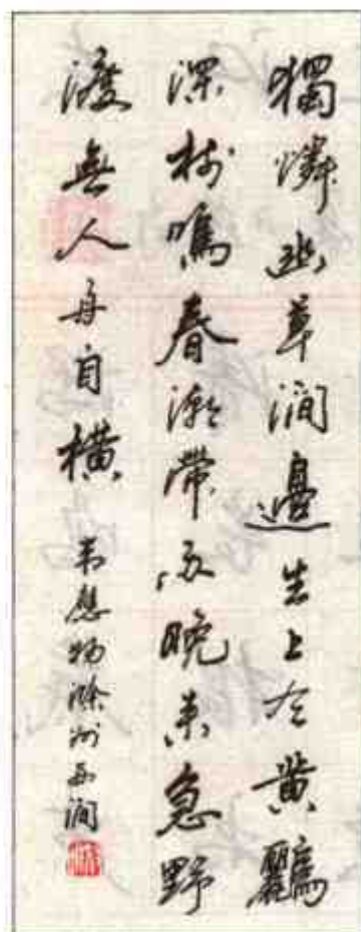 獨憐幽草澗邊生上有黃鸝
深樹鳴春潮帶雨晚來急野
渡無人舟自橫 韦應物滁州西澗